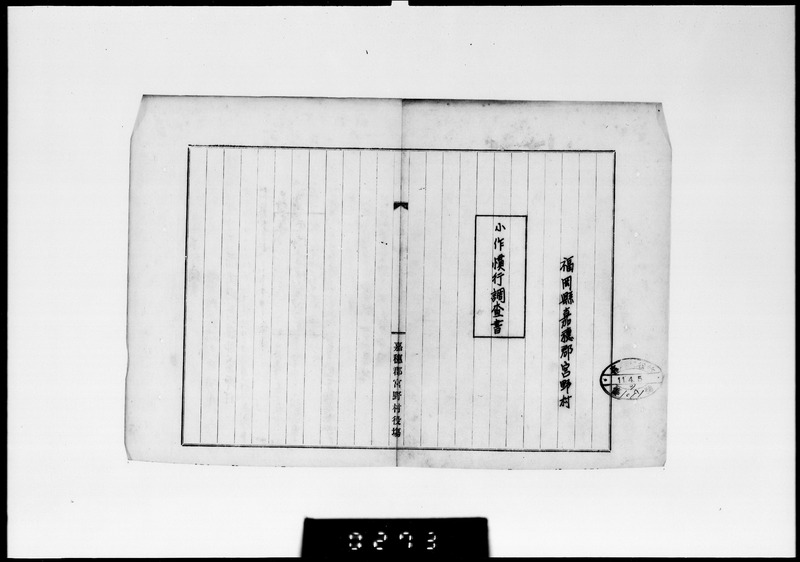 福岡縣嘉穗郡宮野村
小作慣行調査書
嘉穗郡宮野村役場
11.4.5
0273